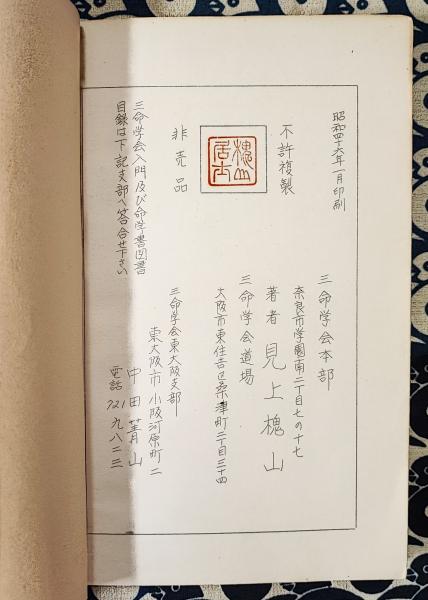 昭和四十六年一月印刷
不許複製
槐山居士
非売品
三命学会入門及び命学書図書
目録は下記支部へ答合せ下さい
三命学会本部
奈良市学園南二丁目七の十七
著者 見上槐山
三命学会道場
大阪市東住吉区桑津町二丁目三十四
三命学会東大阪支部
東大阪市小阪河原町二
中田菁山
電話721九八二三